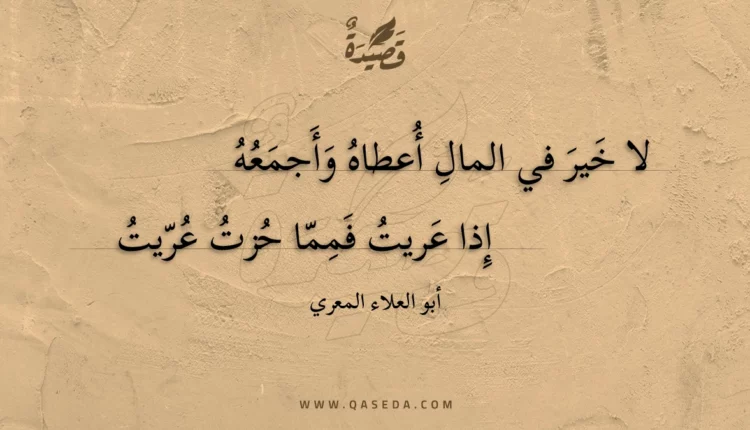 قَصِيدَةٌ
لا خَيرَ في المالِ أُعطاهُ وَأَجمَعُهُ
إِذا عَريتُ فَمِمّا حُزتُ عُرّيتُ
أبو العلاء المعري
WWW.QASEDA.COM